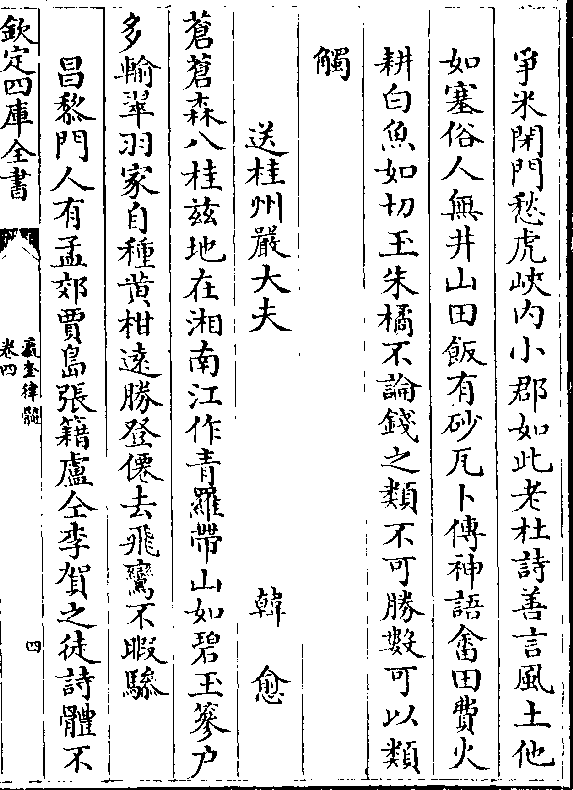 爭米閉門愁虎峽内小郡如此老杜詩善言風土他
如塞俗人無井山田飯有砂瓦卜傳神語畬田費火
耕白魚如切玉朱橘不論錢之類不可勝數可以類
觸
送桂州嚴大夫 韓愈
蒼蒼森八桂兹地在湘南江作青羅帶山如碧玉篸户
多輸翠羽家自種黄柑遠勝登僊去飛鸞不暇驂
昌黎門人有孟郊賈島張籍盧仝李賀之徒詩體不
欽定四庫全書
瀛奎律髓
卷四
四